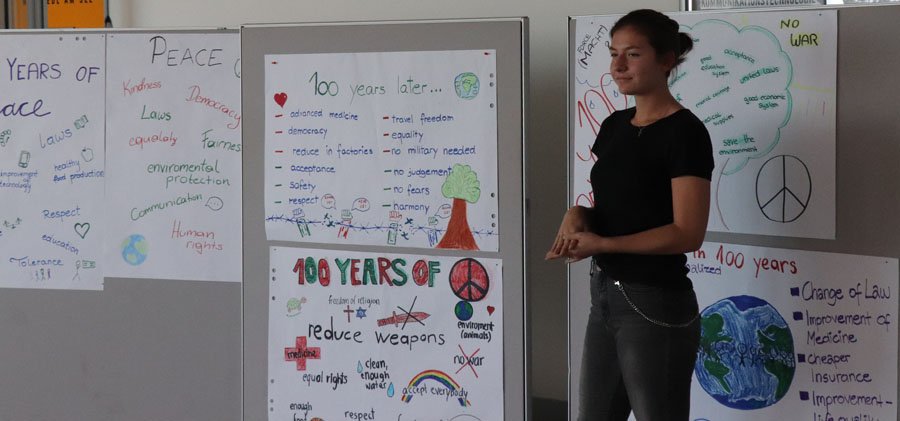 KOMMUNIKATIONSTECHNOLOGIE
YEARS OF
eace
Laws
healthy
food production
improvement of
technology
Respect
education
Tolerance
PEACE
Kindness
Democracy
Laws
equalaly
Fairness
enviromental
protection
Communication
Human
rights
100 years later...
advanced medicine
democracy
reduce in factories
acceptance
safety
respect
travel freedom
equality
no military needed
no judgement
no fears
harmony
100 YEARS OF
freedom of religion
reduce weapons
enviroment
(animals)
medicine
clean,
enough
water
no war
equal rights
accept everybody
enough
respect
(MACHT)
NO
WAR
acceptance
good
education
system
united laws
good economic
system
medical support
save the
environment
in 100 years
Change of Law
Improvement of
Medicine
Cheaper
Insurance
Improvement-
life quality